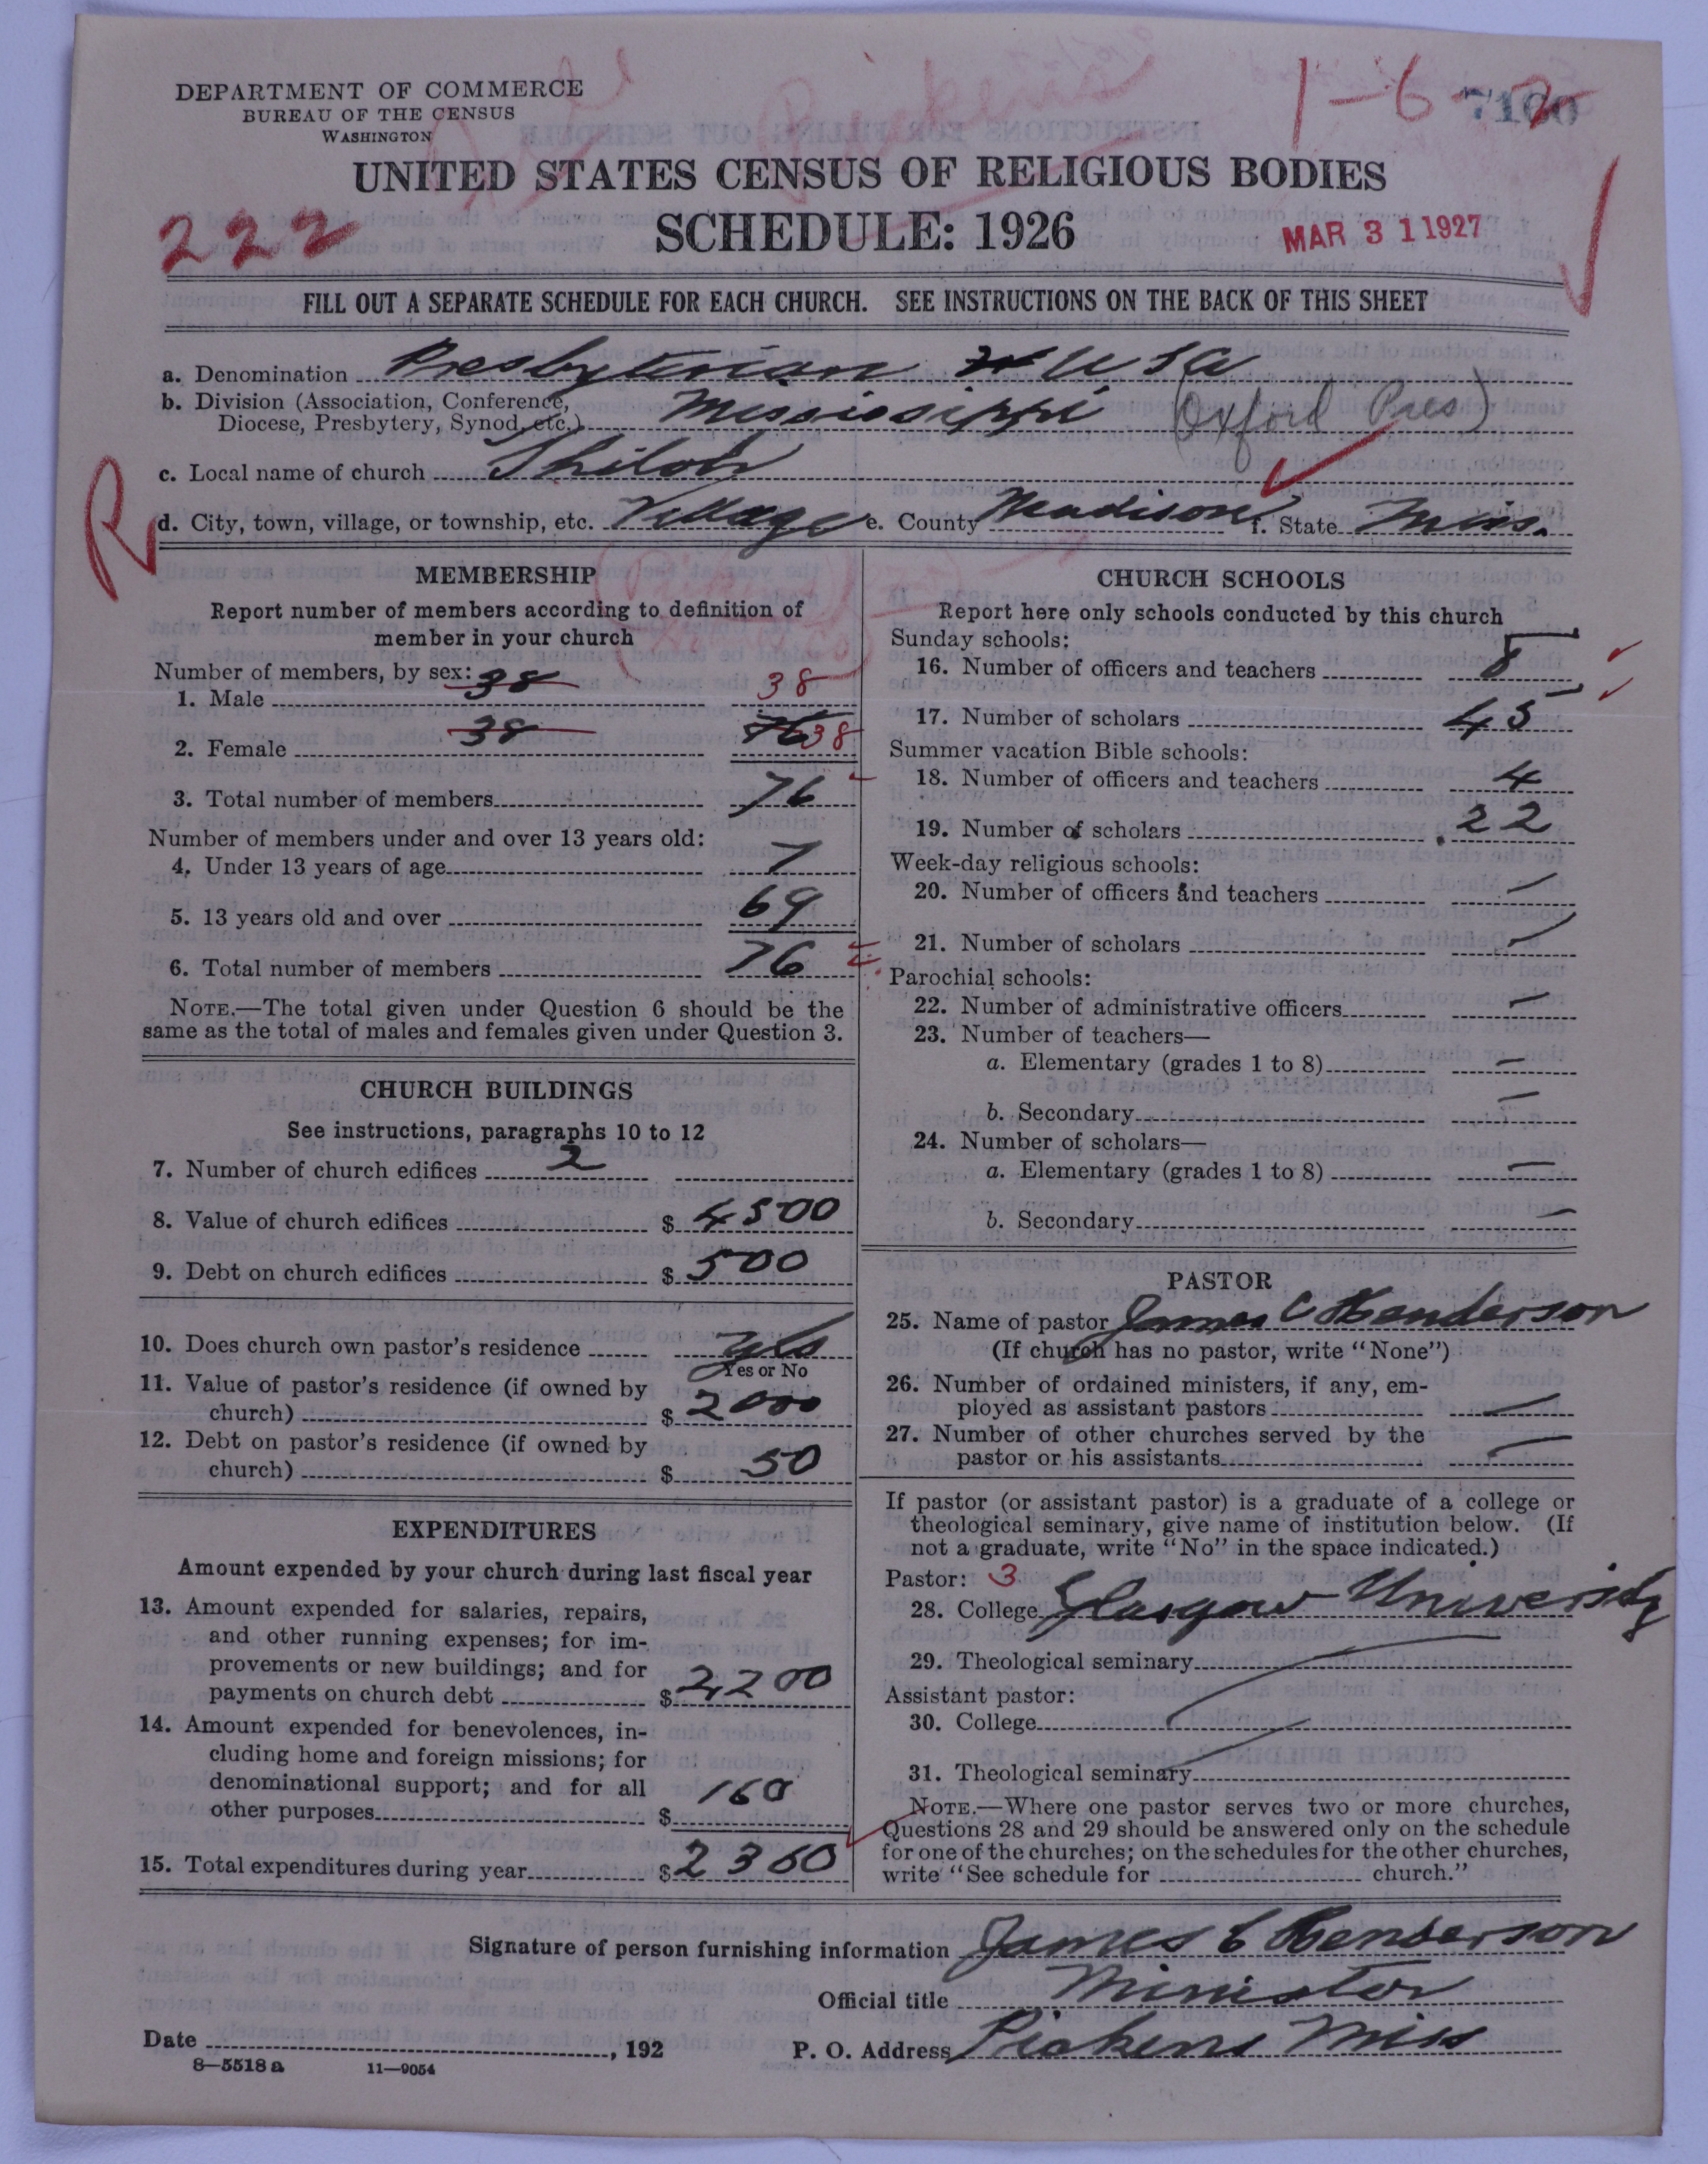 DEPARTMENT OF COMMERCE
BUREAU OF THE CENSUS
WASHINGTON
1-6
7160
UNITED STATES CENSUS OF RELIGIOUS BODIES
SCHEDULE: 1926
222
MAR 31 1927
FILL OUT A SEPARATE SCHEDULE FOR EACH CHURCH. SEE INSTRUCTIONS ON THE BACK OF THIS SHEET
a. Denomination Presbyterian USA
b. Division (Association, Conference, Diocese, Presbytery, Synod, etc.) Mississippi (Oxford Pres)
c. Local name of church Shiloh
R
d. City, town, village, or township, etc. Village e. County Madison f. State Miss.
MEMBERSHIP
Report number of members according to definition of
member in your church
Number of members, by sex:
1. Male 38 38
2. Female 38 76 38
3. Total number of members 76
Number of members under and over 13 years old:
4. Under 13 years of age 7
5. 13 years old and over 69
6. Total number of members 76
NOTE.—The total given under Question 6 should be the
same as the total of males and females given under Question 3.
CHURCH BUILDINGS
See instructions, paragraphs 10 to 12
7. Number of church edifices 2
8. Value of church edifices $ 4500
9. Debt on church edifices $ 500
10. Does church own pastor's residence yes
Yes or No
11. Value of pastor's residence (if owned by
church) $ 2000
12. Debt on pastor's residence (if owned by
church) $ 50
EXPENDITURES
Amount expended by your church during last fiscal year
13. Amount expended for salaries, repairs,
and other running expenses; for im-
provements or new buildings; and for
payments on church debt $ 2,200
14. Amount expended for benevolences, in-
cluding home and foreign missions; for
denominational support; and for all
other purposes $ 160
15. Total expenditures during year $ 2360
CHURCH SCHOOLS
Report here only schools conducted by this church
Sunday schools:
16. Number of officers and teachers 8
17. Number of scholars 45
Summer vacation Bible schools:
18. Number of officers and teachers 4
19. Number of scholars 22
Week-day religious schools:
20. Number of officers and teachers —
21. Number of scholars —
Parochial schools:
22. Number of administrative officers —
23. Number of teachers—
a. Elementary (grades 1 to 8) —
b. Secondary —
24. Number of scholars—
a. Elementary (grades 1 to 8) —
b. Secondary —
PASTOR
25. Name of pastor James C Henderson
(If church has no pastor, write "None")
26. Number of ordained ministers, if any, em-
ployed as assistant pastors —
27. Number of other churches served by the
pastor or his assistants —
If pastor (or assistant pastor) is a graduate of a college or
theological seminary, give name of institution below. (If
not a graduate, write "No" in the space indicated.)
Pastor: 3
28. College Glasgow University
29. Theological seminary
Assistant pastor:
30. College
31. Theological seminary
NOTE.—Where one pastor serves two or more churches,
Questions 28 and 29 should be answered only on the schedule
for one of the churches; on the schedules for the other churches,
write "See schedule for church."
Signature of person furnishing information James C Henderson
Official title Minister
Date , 192 P. O. Address Pickens Miss
8—5518 a 11—9054